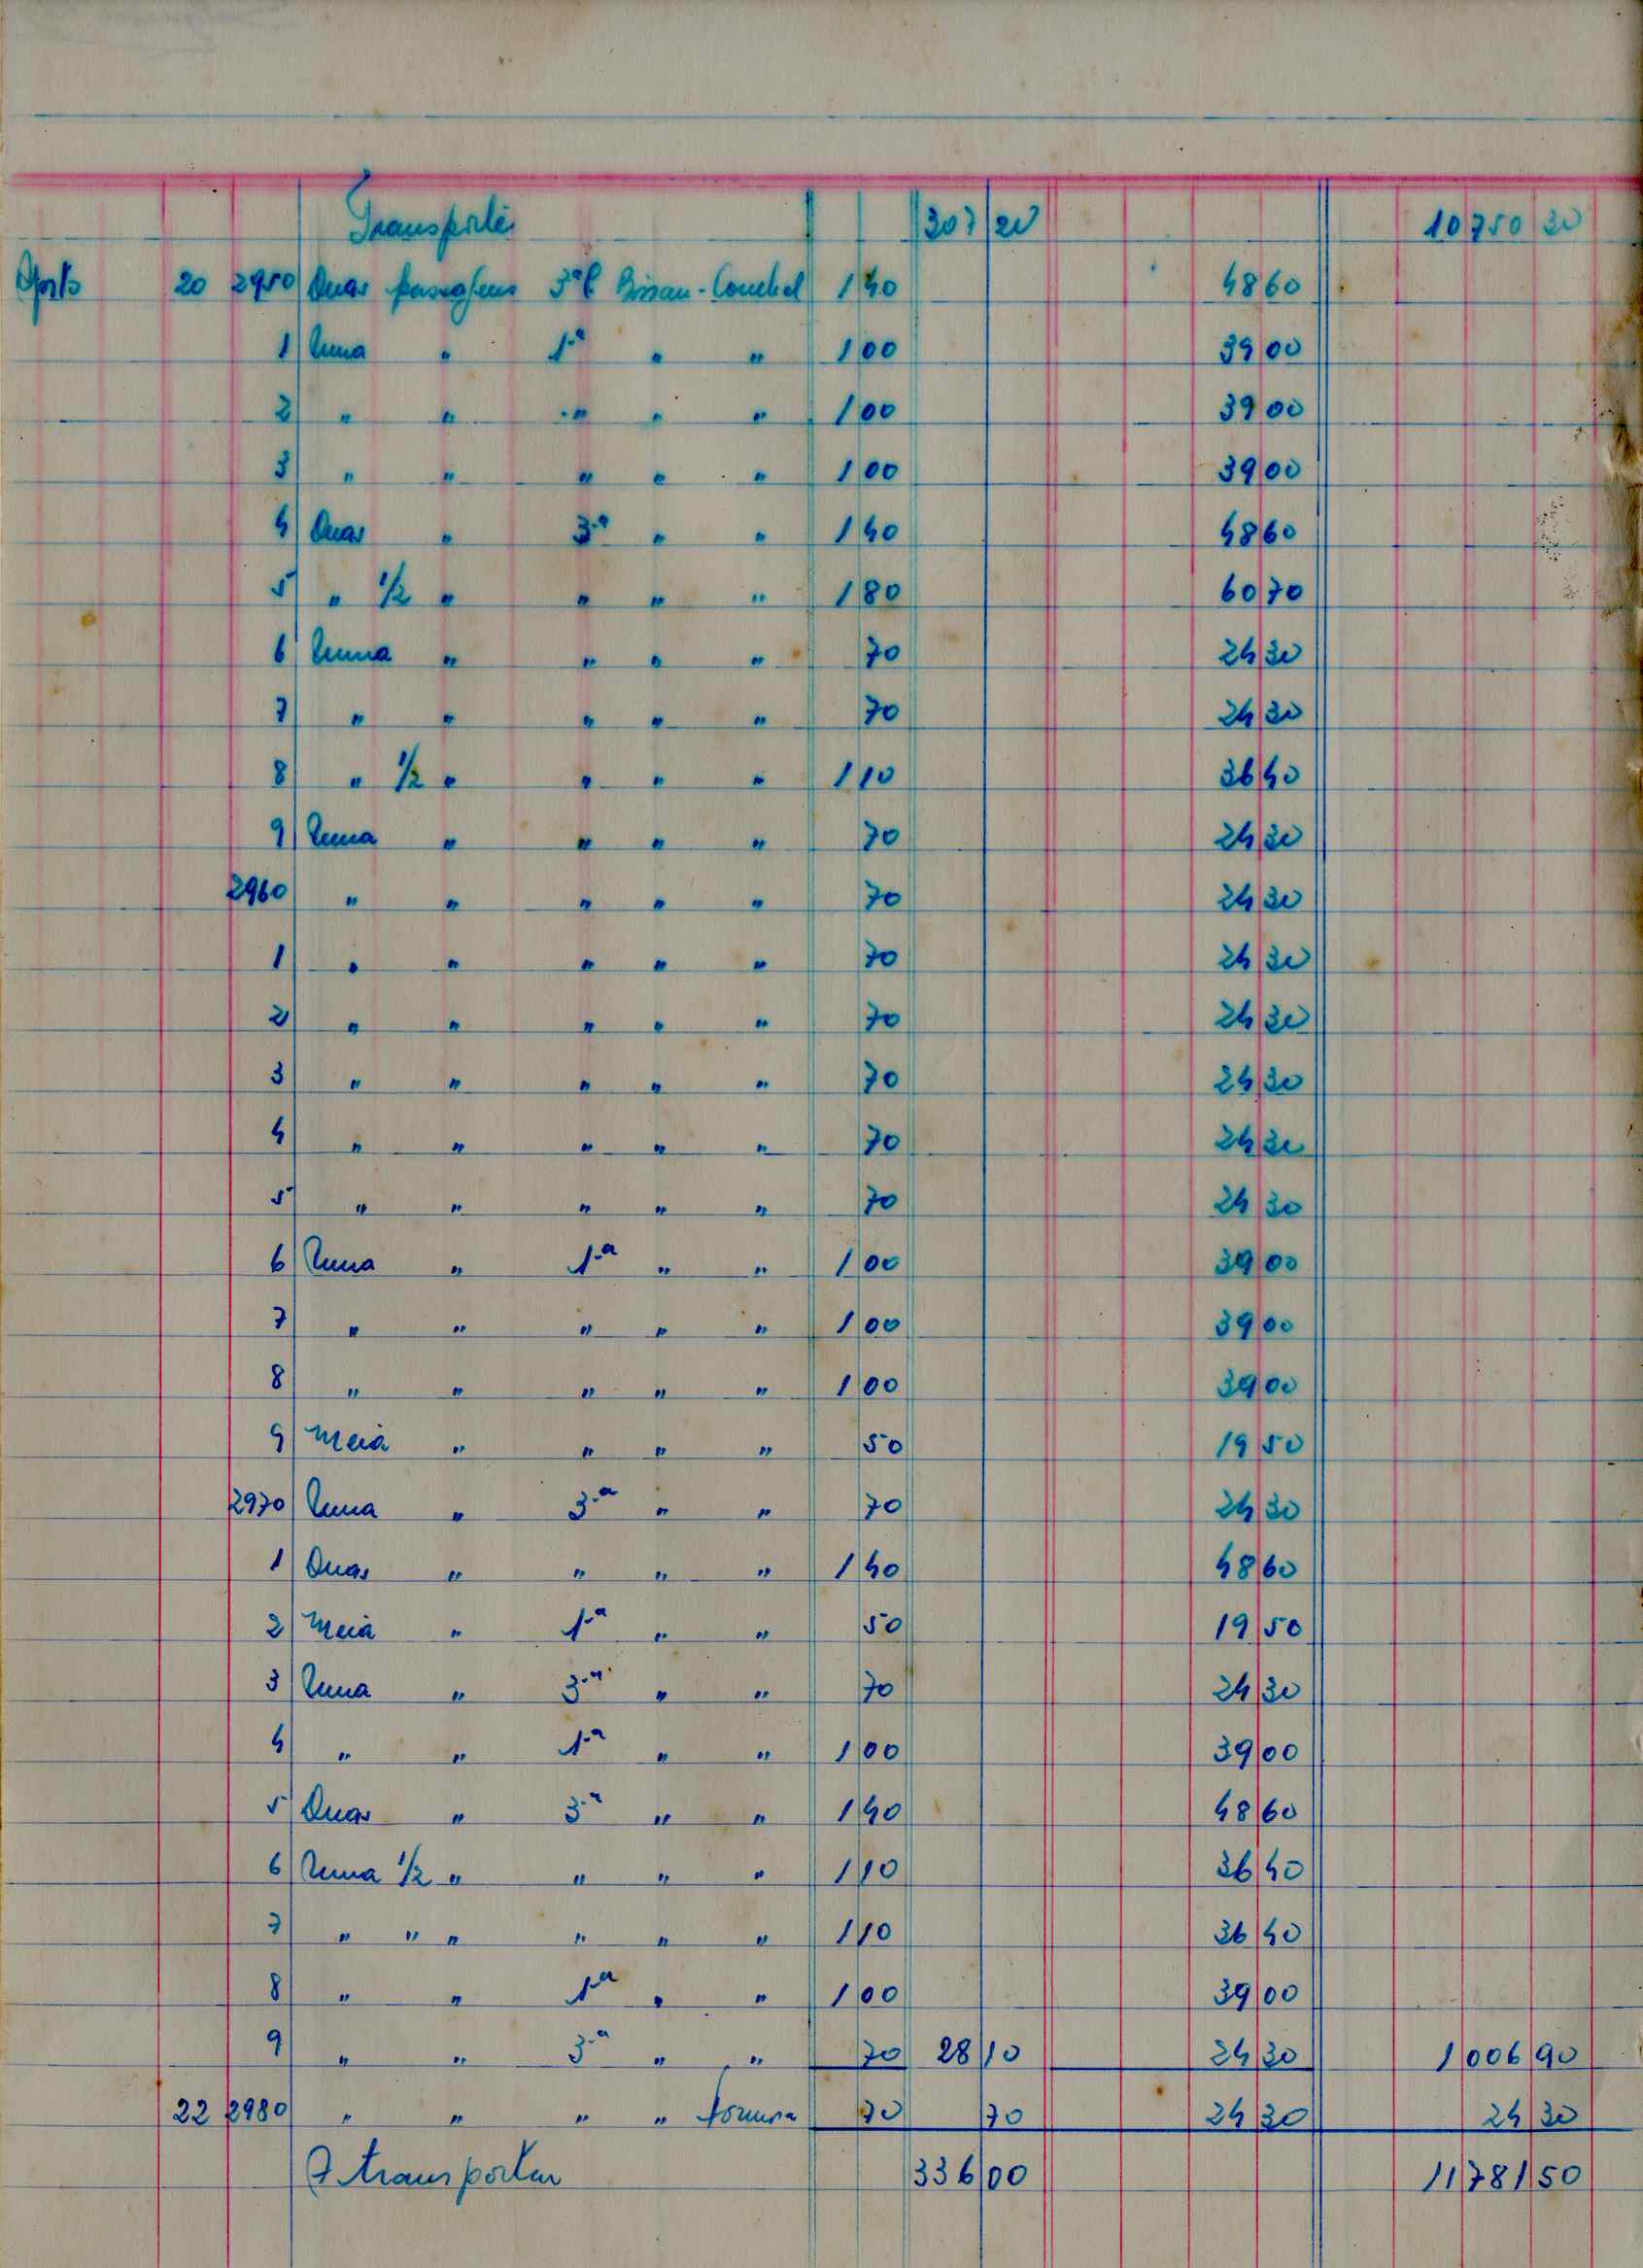 Transporte 307 20 10750 30
Agosto 20 2950 Duas passagens 3ª cl Bissau - 1 40 48 60
1 Uma " 1ª " " 1 00 39 00
2 " " " " " 1 00 39 00
3 " " " " " 1 00 39 00
4 Duas " 3ª " " 1 40 48 60
5 " 1/2 " " " " 1 80 60 70
6 Uma " " " " 70 24 30
7 " " " " " 70 24 30
8 " 1/2 " " " " 1 10 36 40
9 Uma " " " " 70 24 30
2960 " " " " " 70 24 30
1 " " " " " 70 24 30
2 " " " " " 70 24 30
3 " " " " " 70 24 30
4 " " " " " 70 24 30
5 " " " " " 70 24 30
6 Uma " 1ª " " 1 00 39 00
7 " " " " " 1 00 39 00
8 " " " " " 1 00 39 00
9 Meia " " " " 50 19 50
2970 Uma " 3ª " " 70 24 30
1 Duas " " " " 1 40 48 60
2 Meia " 1ª " " 50 19 50
3 Uma " 3ª " " 70 24 30
4 " " 1ª " " 1 00 39 00
5 Duas " 3ª " " 1 40 48 60
6 Uma 1/2 " " " " 1 10 36 40
7 " " " " " " 1 10 36 40
8 " " 1ª " " 1 00 39 00
9 " " 3ª " " 70 28 10 24 30 1 006 90
22 2980 " " " " 70 70 24 30 24 30
A transportar 336 00 11781 50